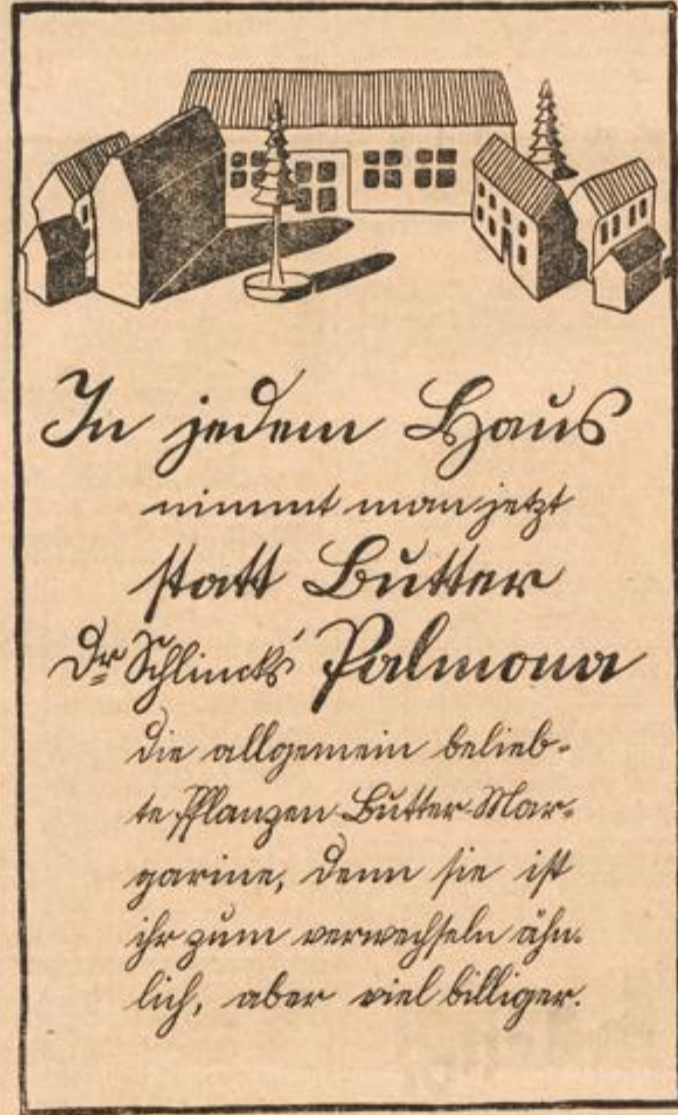 In jedem Haus
nimmt man jetzt
statt Butter
Dr Schlincks' Palmona
die allgemein belieb-
te Pflanzen-Butter-Mar-
garine, denn sie ist
ihr zum verwechseln ähn-
lich, aber viel billiger.